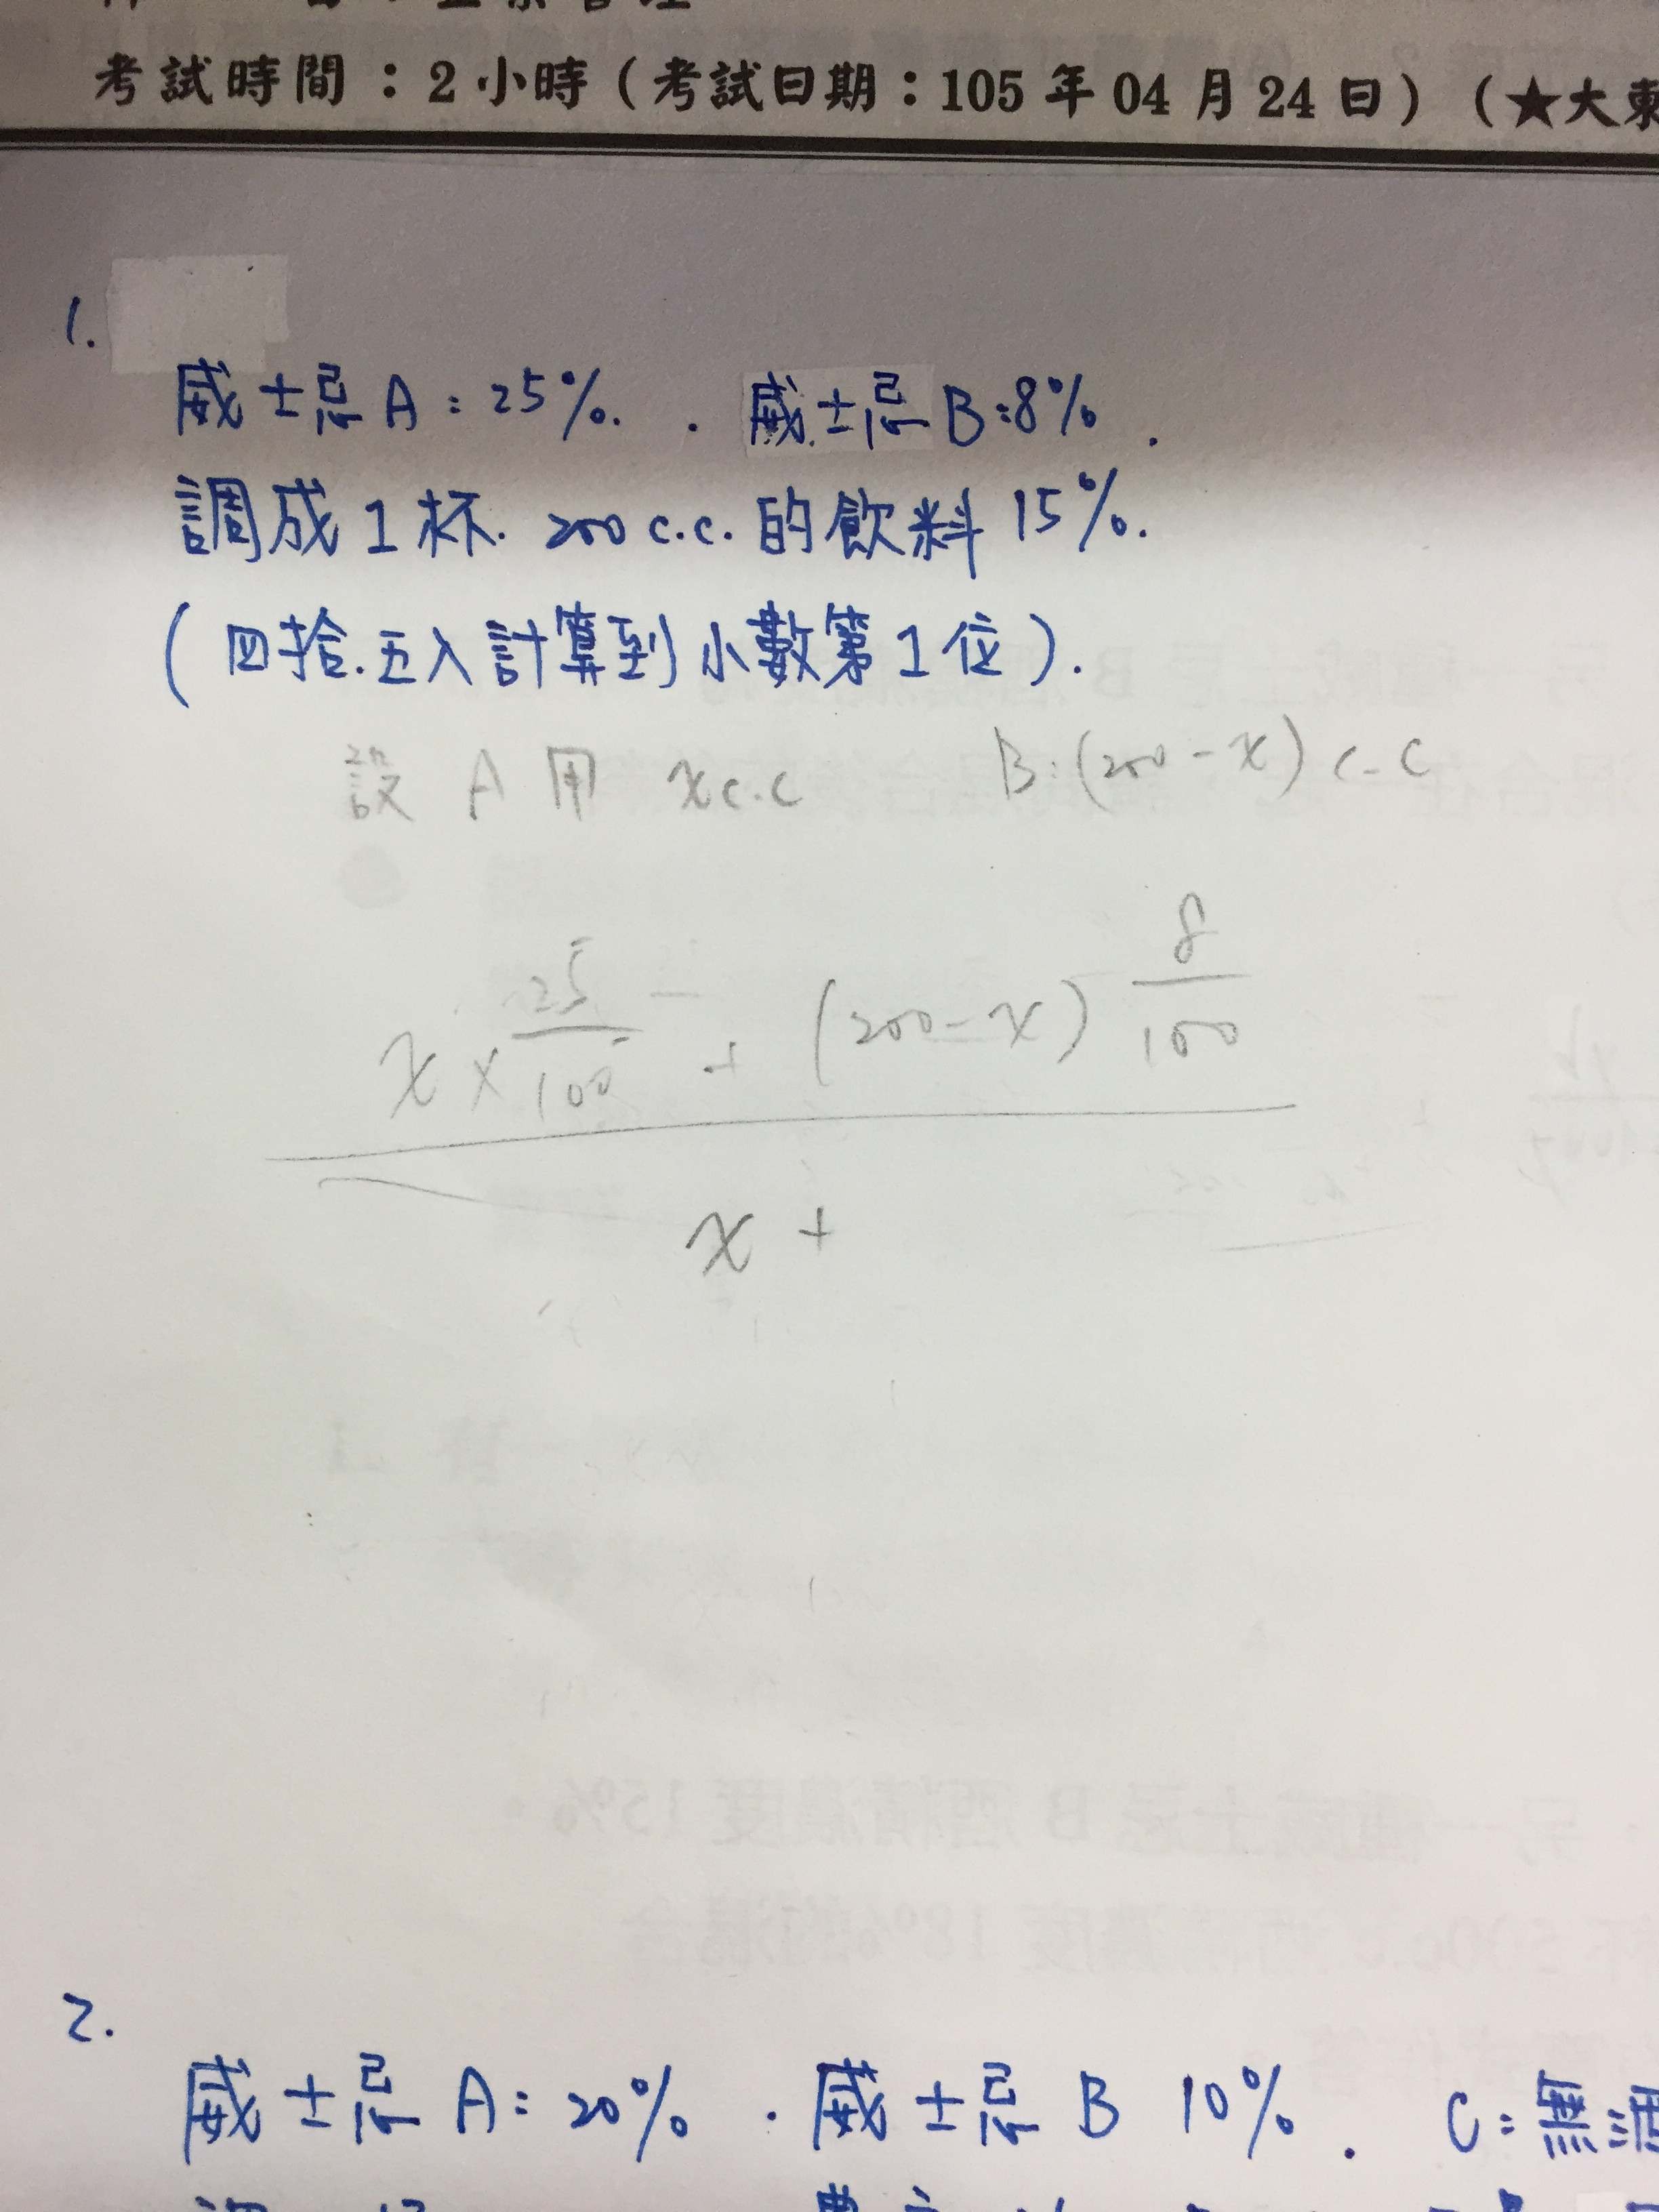 考試時間：2 小時（考試日期：105 年 04 月 24 日）（★大東
1.
威士忌 A：25%. . 威士忌 B:8% .
調成 1 杯. 200 c.c. 的飲料 15%.
( 四拾.五入計算到小數第 1 位).
設 A 用 x c.c B:(200-x) c.c
x × 25/100 + (200-x) 8/100
x +
2.
威士忌 A: 20% . 威士忌 B 10% . C:無酒